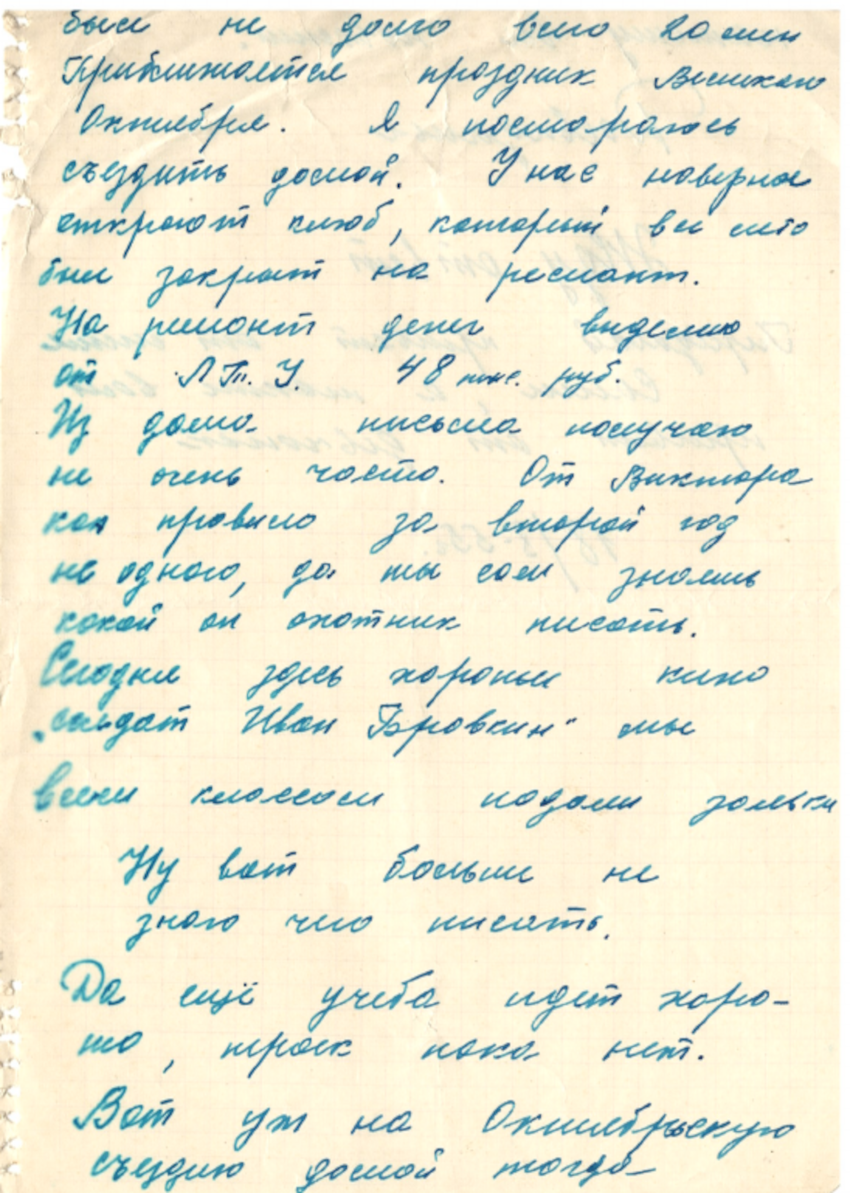 был не долго всего 20 мин
Приближается праздник Великого
Октября. Я постараюсь
съездить домой. У нас наверное
откроют клуб, который всё лето
был закрыт на ремонт.
На ремонт денег выделило
от Л.Т.У. 48 тыс. руб.
Из дома письма получаю
не очень часто. От Виктора
как правило за второй год
не одного, да ты сам знаешь
какой он охотник писать.
Сегодня здесь хорошее кино
„Солдат Иван Бровкин" мы
всем классом подали
Ну вот больше не
знаю чего писать.
Да ещё учеба идет хоро-
шо, троек пока нет.
Вот уж на Октябрьскую
съездию домой тогда